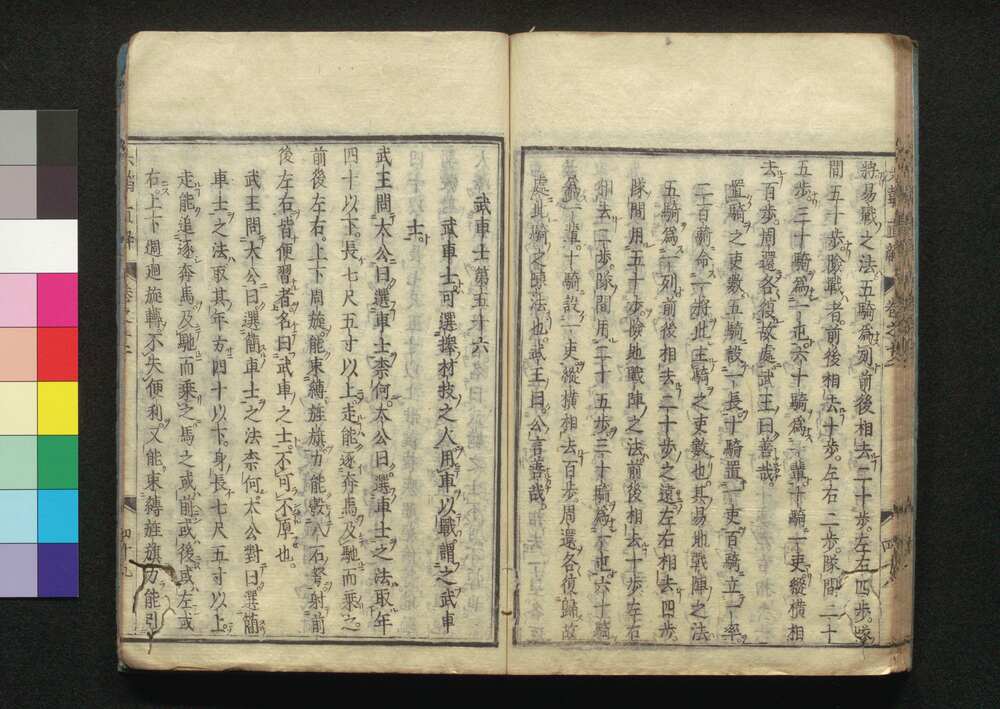 將易戰之法五騎爲列前後相去二十歩左右四歩隊
間五十歩險戰者前後相去十歩左右二歩隊間二十
五歩三十騎爲一屯六十騎爲一輩十騎一吏縱横相
去百歩周還各復故處武王曰善哉
置騎之吏數五騎設一長十騎置一吏百騎立一率
二百騎命一將此立騎之吏數也其易地戰陣之法
五騎爲一列前後相去二十歩之遠左右相去四歩
隊間用五十歩險地戰陣之法前後相去十歩左右
相去二歩隊間用二十五歩三十騎爲一屯六十騎
爲一輩十騎設一吏縱横相去百歩周還各復歸故
處其騎之陣法也武王曰公言善哉
武車士第五十六
武車士可選擇材技之人用車以戰謂之武車
士
武王問太公曰選車士柰何太公曰選車士之法取年
四十以下長七尺五寸以上走能逐奔馬及馳而乘之
前後左右上下周旋能束縛旌旗力能彀八石弩射前
後左右皆便習者名曰武車之士不可不厚也
武王問太公曰選簡車士之法柰何太公對曰選簡
車士之法取其年方四十以下身長七尺五寸以上
走能追逐奔馬及馳而乘之馬之或前或後或左或
右上下週迴旋轉不失便利又能束縛旌旗力能引